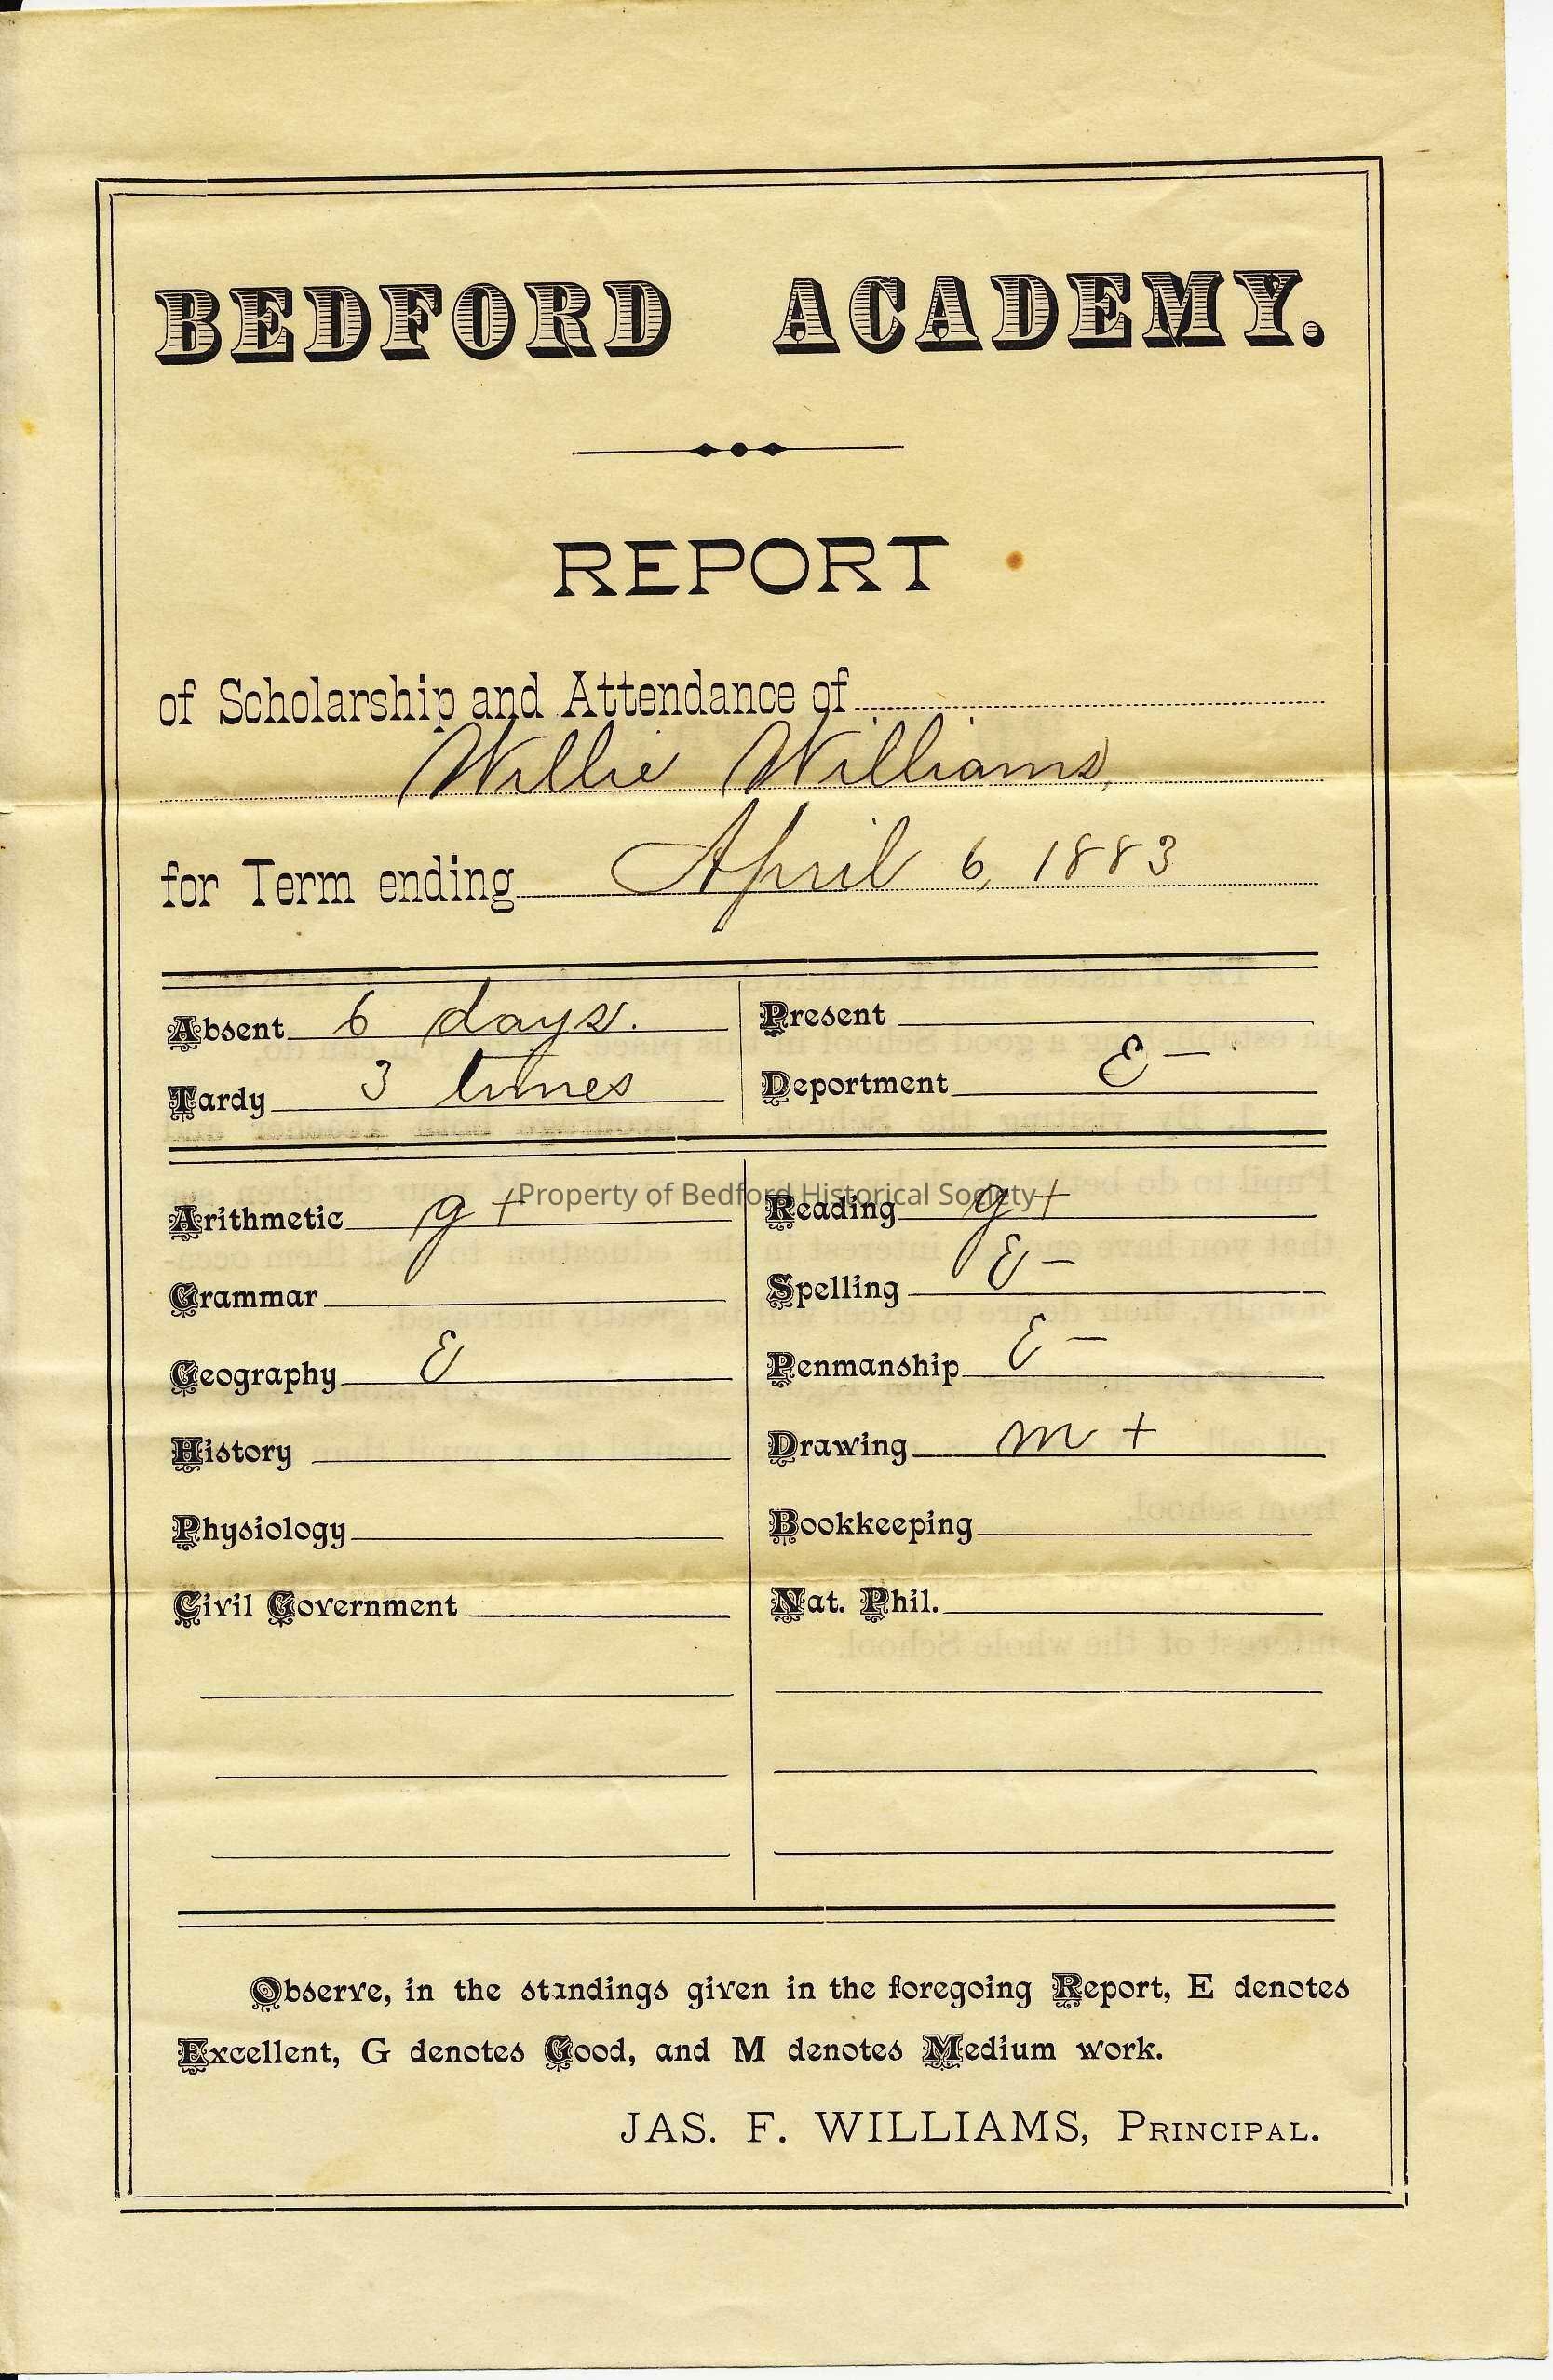 BEDFORD ACADEMY.
REPORT
of Scholarship and Attendance of
Willie Williams,
for Term ending April 6, 1883
Absent 6 days. Present
Tardy 3 times Deportment E -
Property of Bedford Historical Society
Arithmetic g + Reading g +
Grammar Spelling E -
Geography E Penmanship E -
History Drawing m +
Physiology Bookkeeping
Civil Government Nat. Phil.
Observe, in the standings given in the foregoing Report, E denotes
Excellent, G denotes Good, and M denotes Medium work.
JAS. F. WILLIAMS, PRINCIPAL.